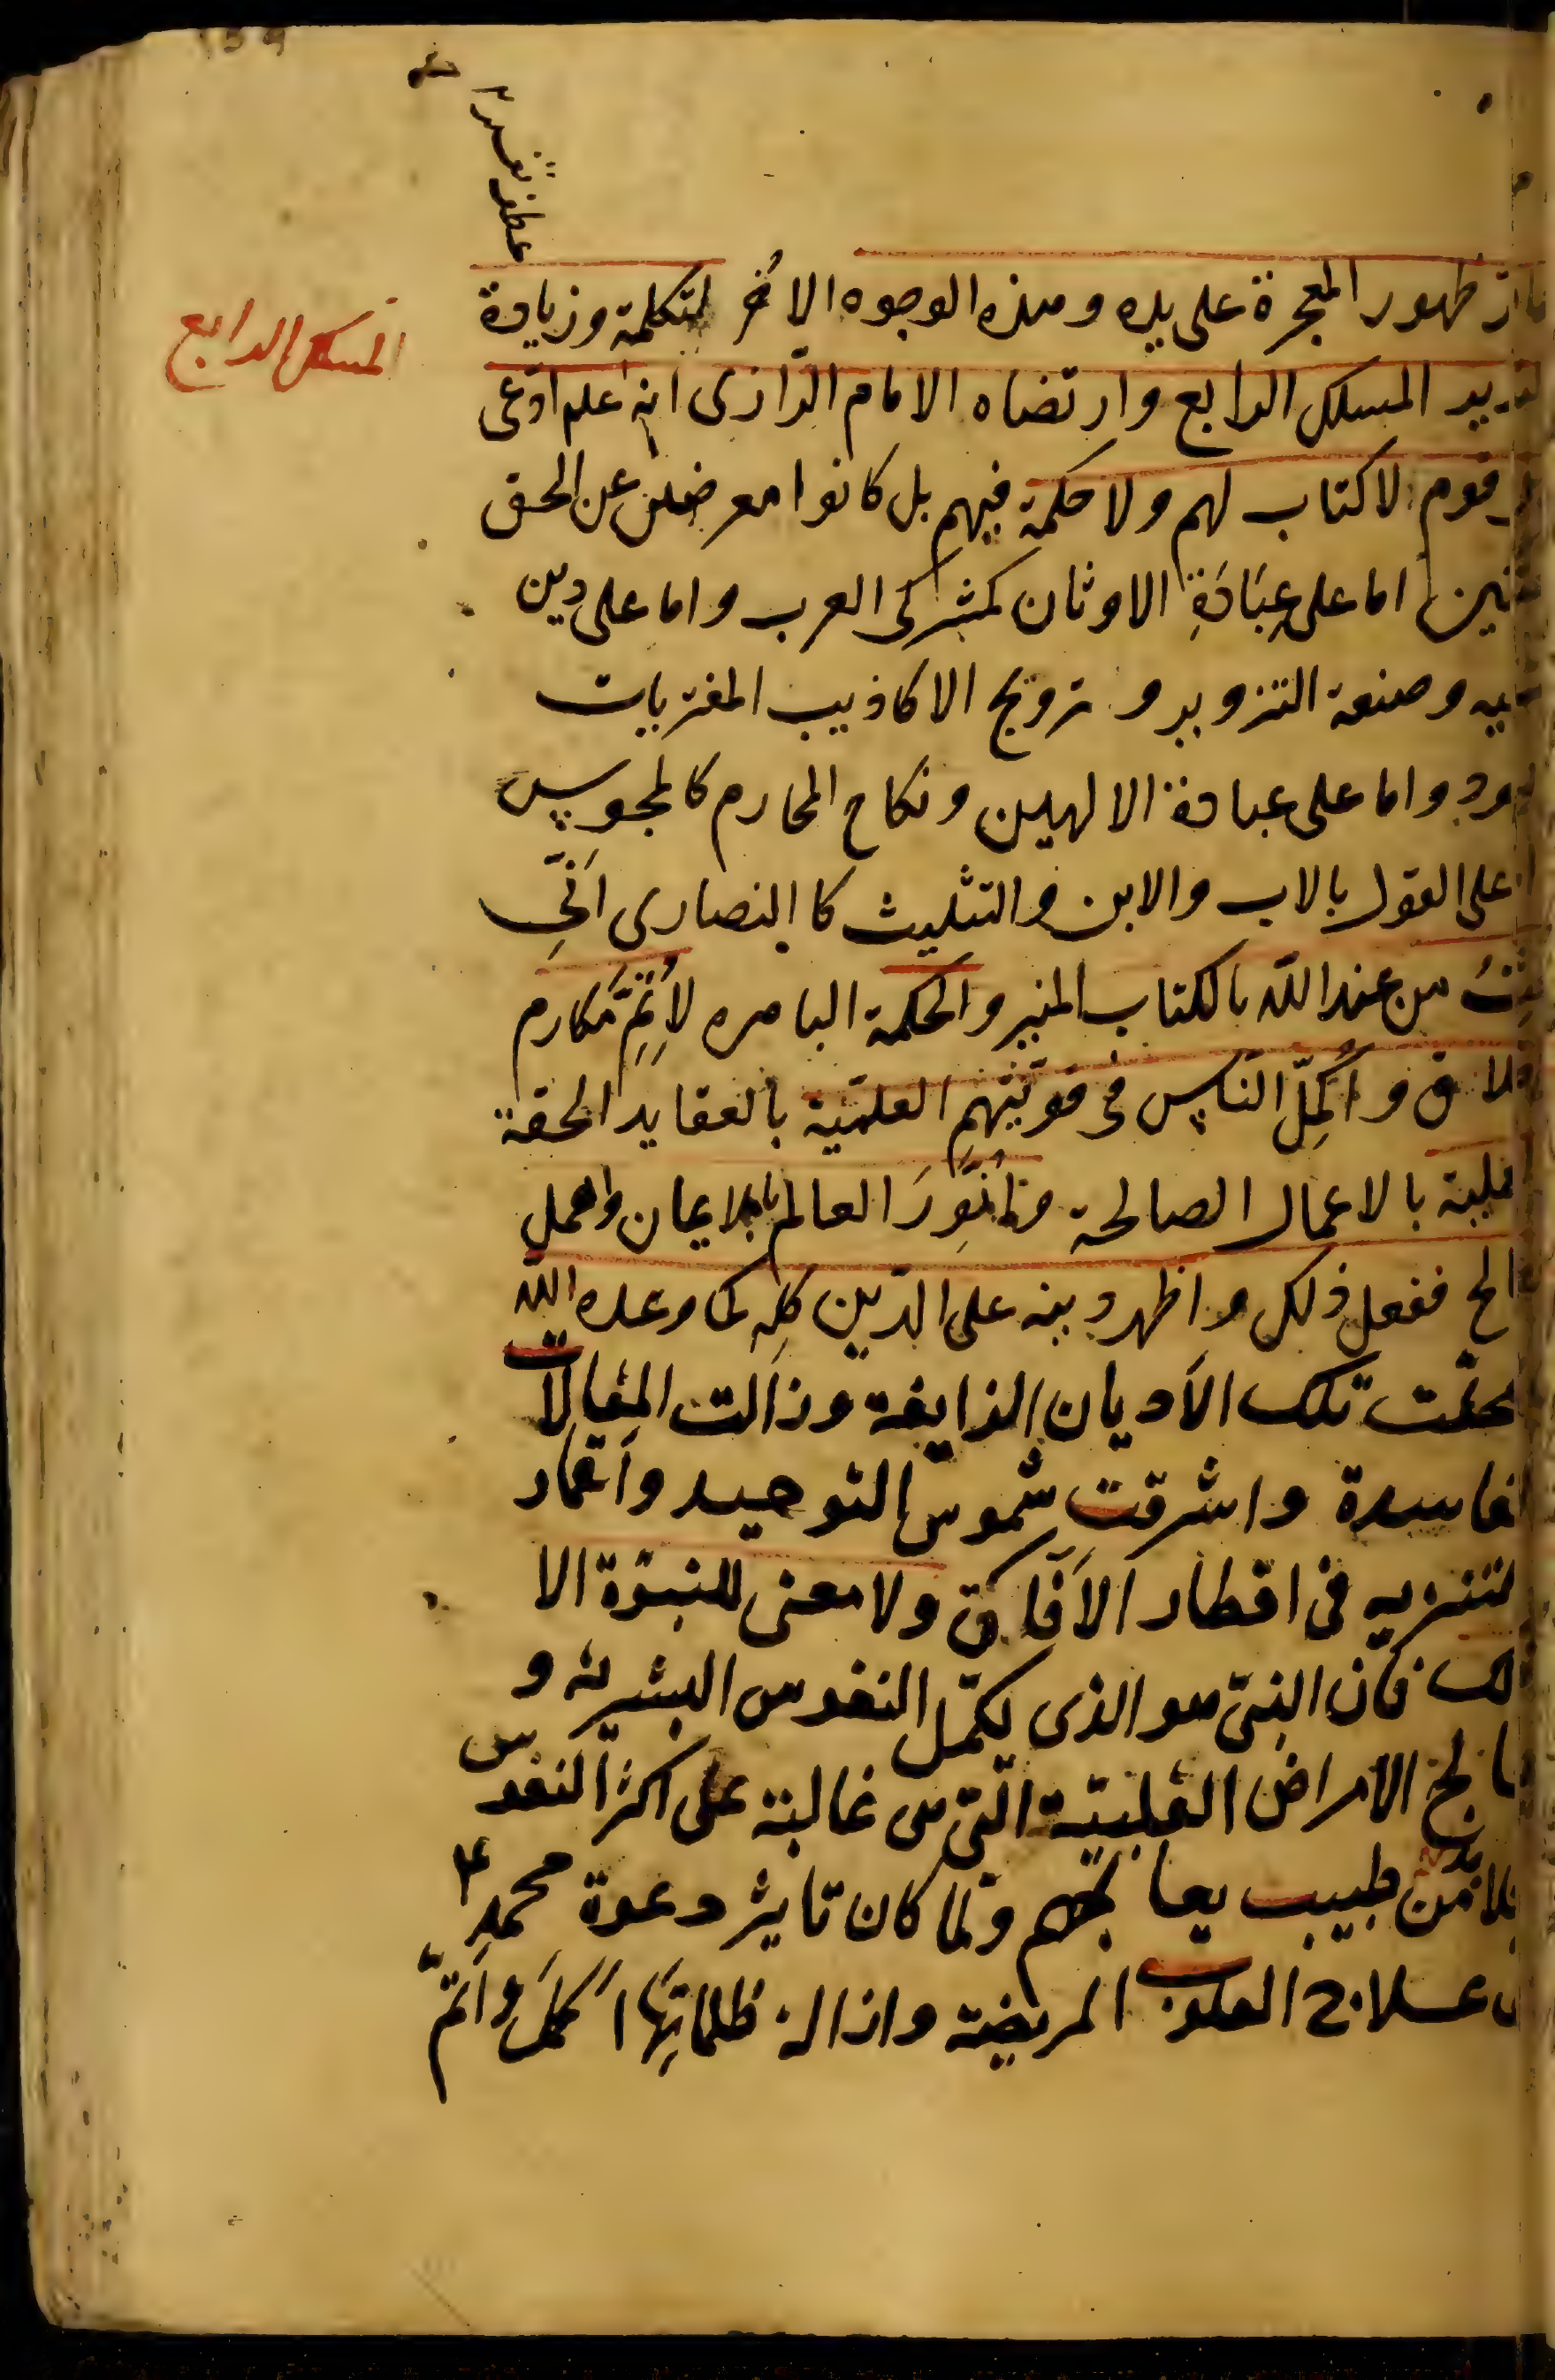 عطف تفسير
ظهور المعجزة على يده وهذه الوجوه الاخر لتكملة وزيادة
المسلك الرابع
المسلك الرابع وارتضاه الامام الرّازى انه علم ادّعى
قوم لا كتاب لهم ولا حكمة فيهم بل كانوا معرضين عن الحق
اما على عِبَادَةِ الاوثان كمشركى العرب واما على دين
وصنعة التزوير و ترويج الاكاذيب المفتريات
واما على عبادة الالهين ونكاح المحارم كالمجوس
على القول بالاب والابن والتثليث كالنصارى اَنّى
من عند اللّه بالكتاب المنير والحكمة الباهره لاُتَمِّمَ مَكارم
و اُكَمِّلَ النّاس فى قوّتَيْهِم العلميّة بالعقايد الحقة
بالاعمال الصالحة و اُنَوِّرَ العالم بالايمان والعمل
ففعل ذلك و اظهر دينه على الدّين كلِّه كما وعده اللّه
تلك الاَديان الزايغة وزالت المقالات
الفاسدة واشرقت شموس التوحيد واقمار
التنزيه فى اقطار الاَفاق ولا معنى للنبوّة الا
فان النبىّ هو الذى يكمّل النفوس البشريه و
الامراض القلبيّة الّتى هى غالبة على اكثر النفوس
فلا بدّ من طبيب يعالجهم ولما كان تاثير دعوة محمدٍ ع
علاج القلوب المريضة وازالة ظلماتِهَا اَكْمَلَ واَتَمَّ